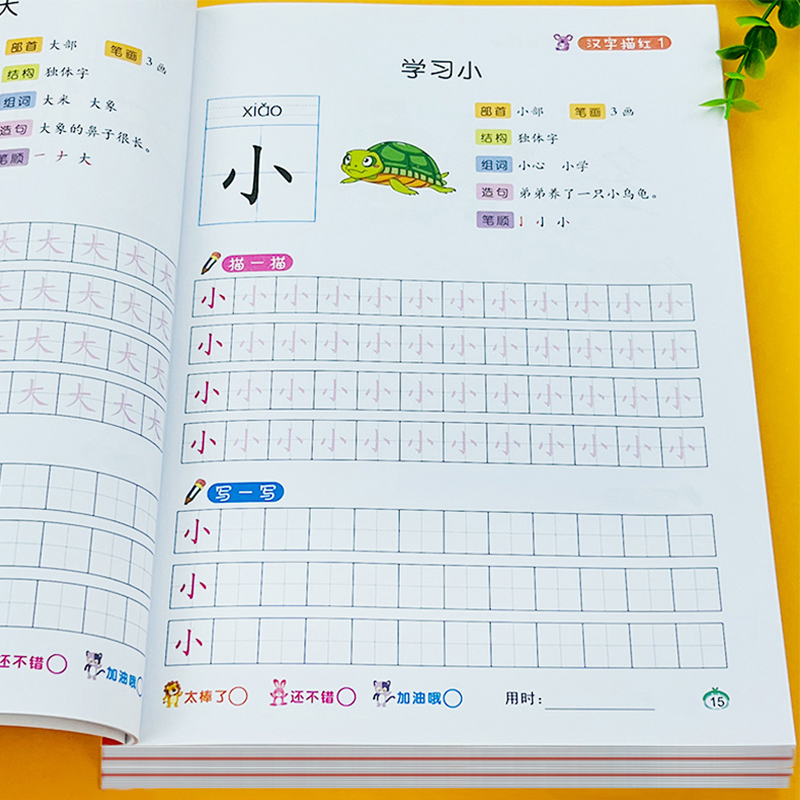 大
部首 大部 笔画 3画
结构 独体字
组词 大米 大象
造句 大象的鼻子很长。
笔顺 一 ナ 大
大 大 大 大 大
大 大 大 大 大
大 大 大 大 大
大 大 大 大
还不错 加油哦
汉字描红1
学习小
xiǎo
小
部首 小部 笔画 3画
结构 独体字
组词 小心 小学
造句 弟弟养了一只小乌龟。
笔顺 亅 小
描一描
小 小 小 小 小 小 小 小 小 小 小 小
小 小 小 小 小 小 小 小 小 小 小 小
小 小 小 小 小 小 小 小 小 小 小 小
小 小 小 小 小 小 小 小 小 小 小 小
写一写
小
小
小
太棒了 还不错 加油哦 用时:
15